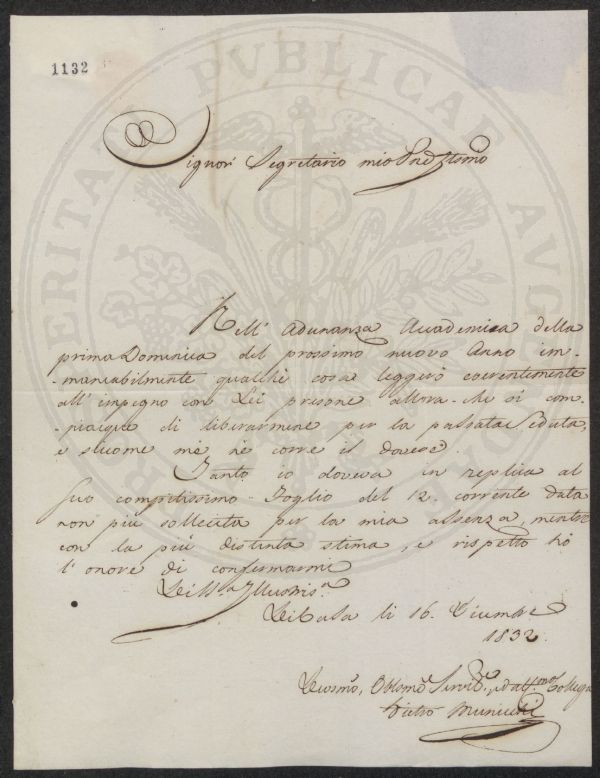 1132
Signor Segretario mio Pne Stimo
Nell' Adunanza Accademica della
prima Dominica del prossimo nuovo Anno im-
-mancabilmente qualche cosa leggerò coerentemente
all' impegno con Lei presone allora che si com-
-piacque di liberarmene per la passata Seduta,
e siccome me ne corre il dovere.
Tanto io doveva in replica al
suo compitissimo Foglio del 12. corrente data
non più sollecita per la mia assenza, mentre
con la più distinta stima, e rispetto hò
l' onore di confermarmi
Di Casa li 16. Dicembre
1832.
Collega
Pietro
PROSPERITATI PVBLICAE AVGENDAE